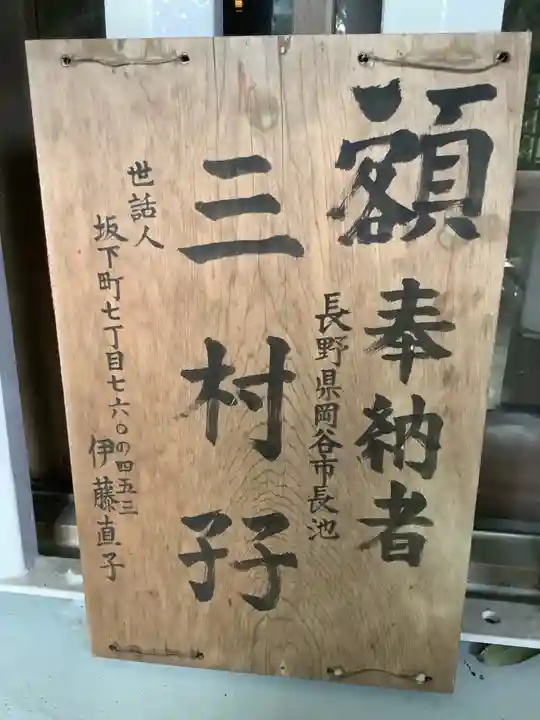 額奉納者
長野県岡谷市長池
三村孖
世話人
坂下町七丁目七六〇の四五三
伊藤直子